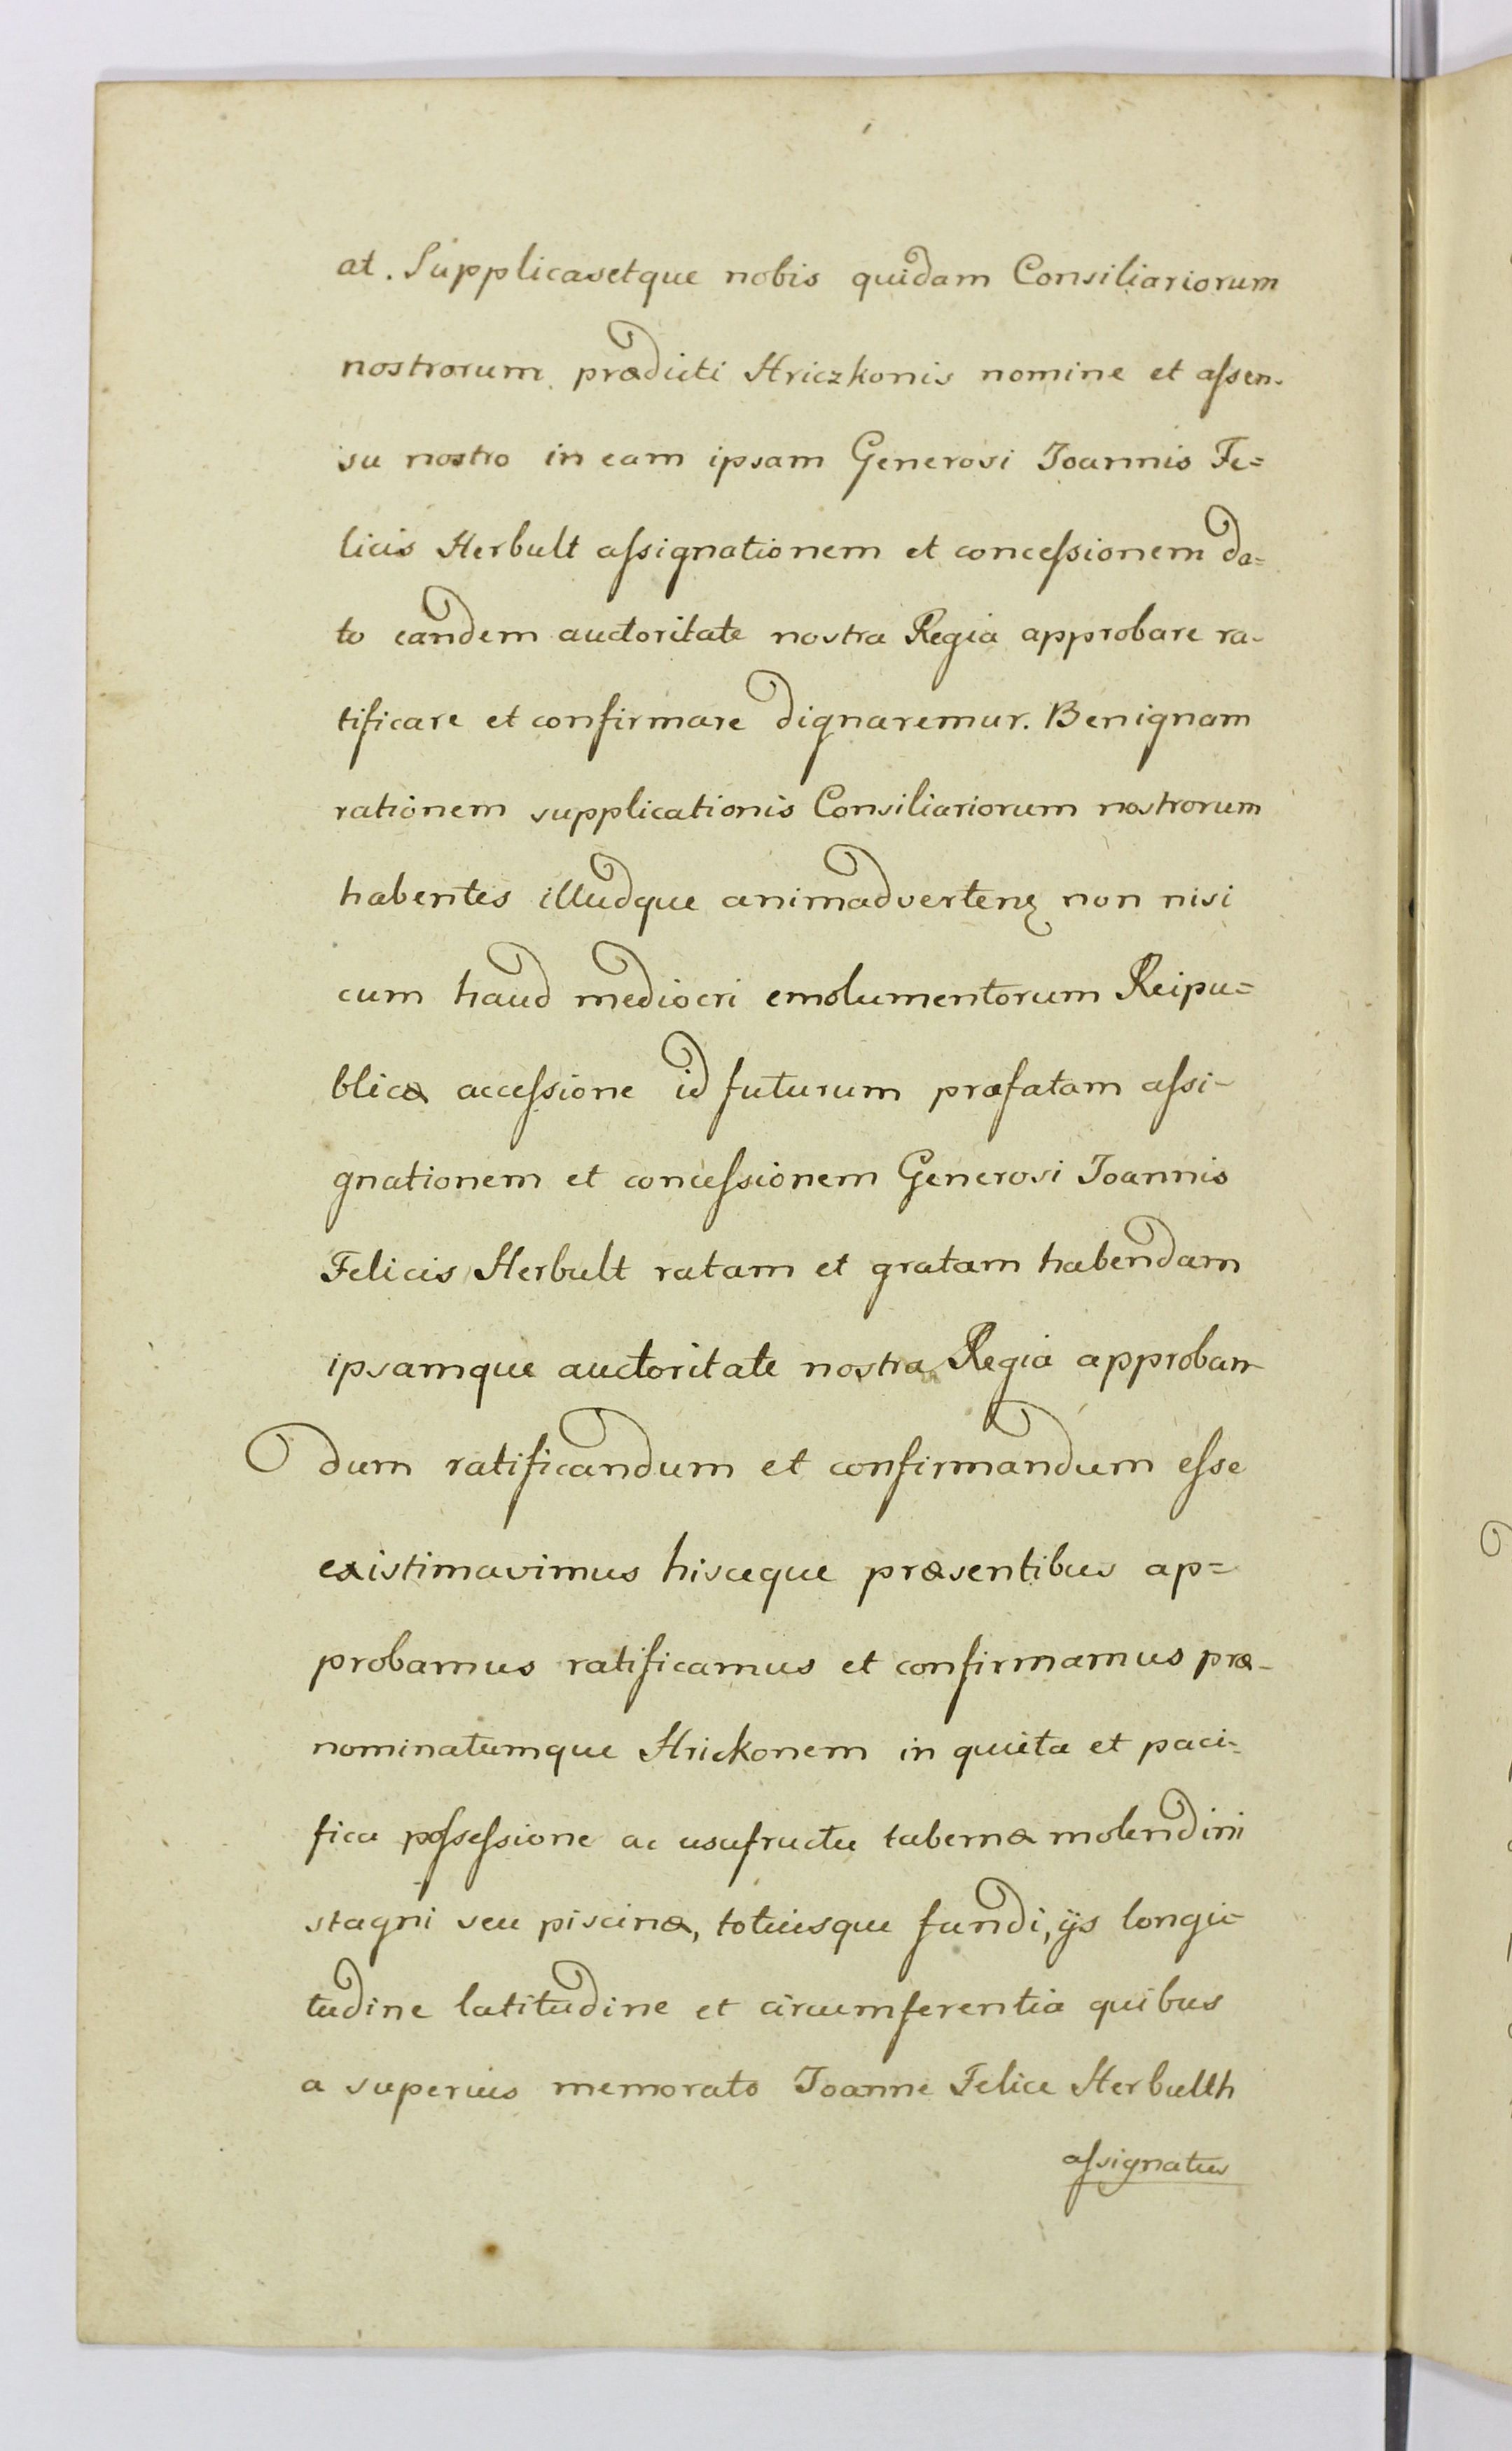 at. Supplicavetque nobis quidam Consiliariorum
nostrorum prædicti Hriczkonis nomine et aſsen-
su nostro in eam ipsam Generosi Joannis Fe=
licis Herbult aſsignationem et conceſsionem da=
to eandem auctoritate nostra Regia approbare ra-
tificare et confirmare dignaremur. Benignam
rationem supplicationis Consiliariorum nostrorum
habentes illudque animadverteng non nisi
cum haud mediocri emolumentorum Reipu=
blicæ acceſsione id futurum præfatam aſsi-
gnationem et conceſsionem Generosi Joannis
Felicis Herbult ratam et gratam habendam
ipsamque auctoritate nostra Regia approban-
dum ratificandum et confirmandum eſse
existimavimus hisceque præsentibus ap=
probamus ratificamus et confirmamus præ-
nominatumque Hrickonem in quieta et paci-
fica poſseſsione ac usufructu tabernæ molendini
stagni seu piscinæ, totiusque fundi, ijs longi-
tudine latitudine et circumferentia quibus
a superius memorato Joanne Felice Herbullh
aſsignatus